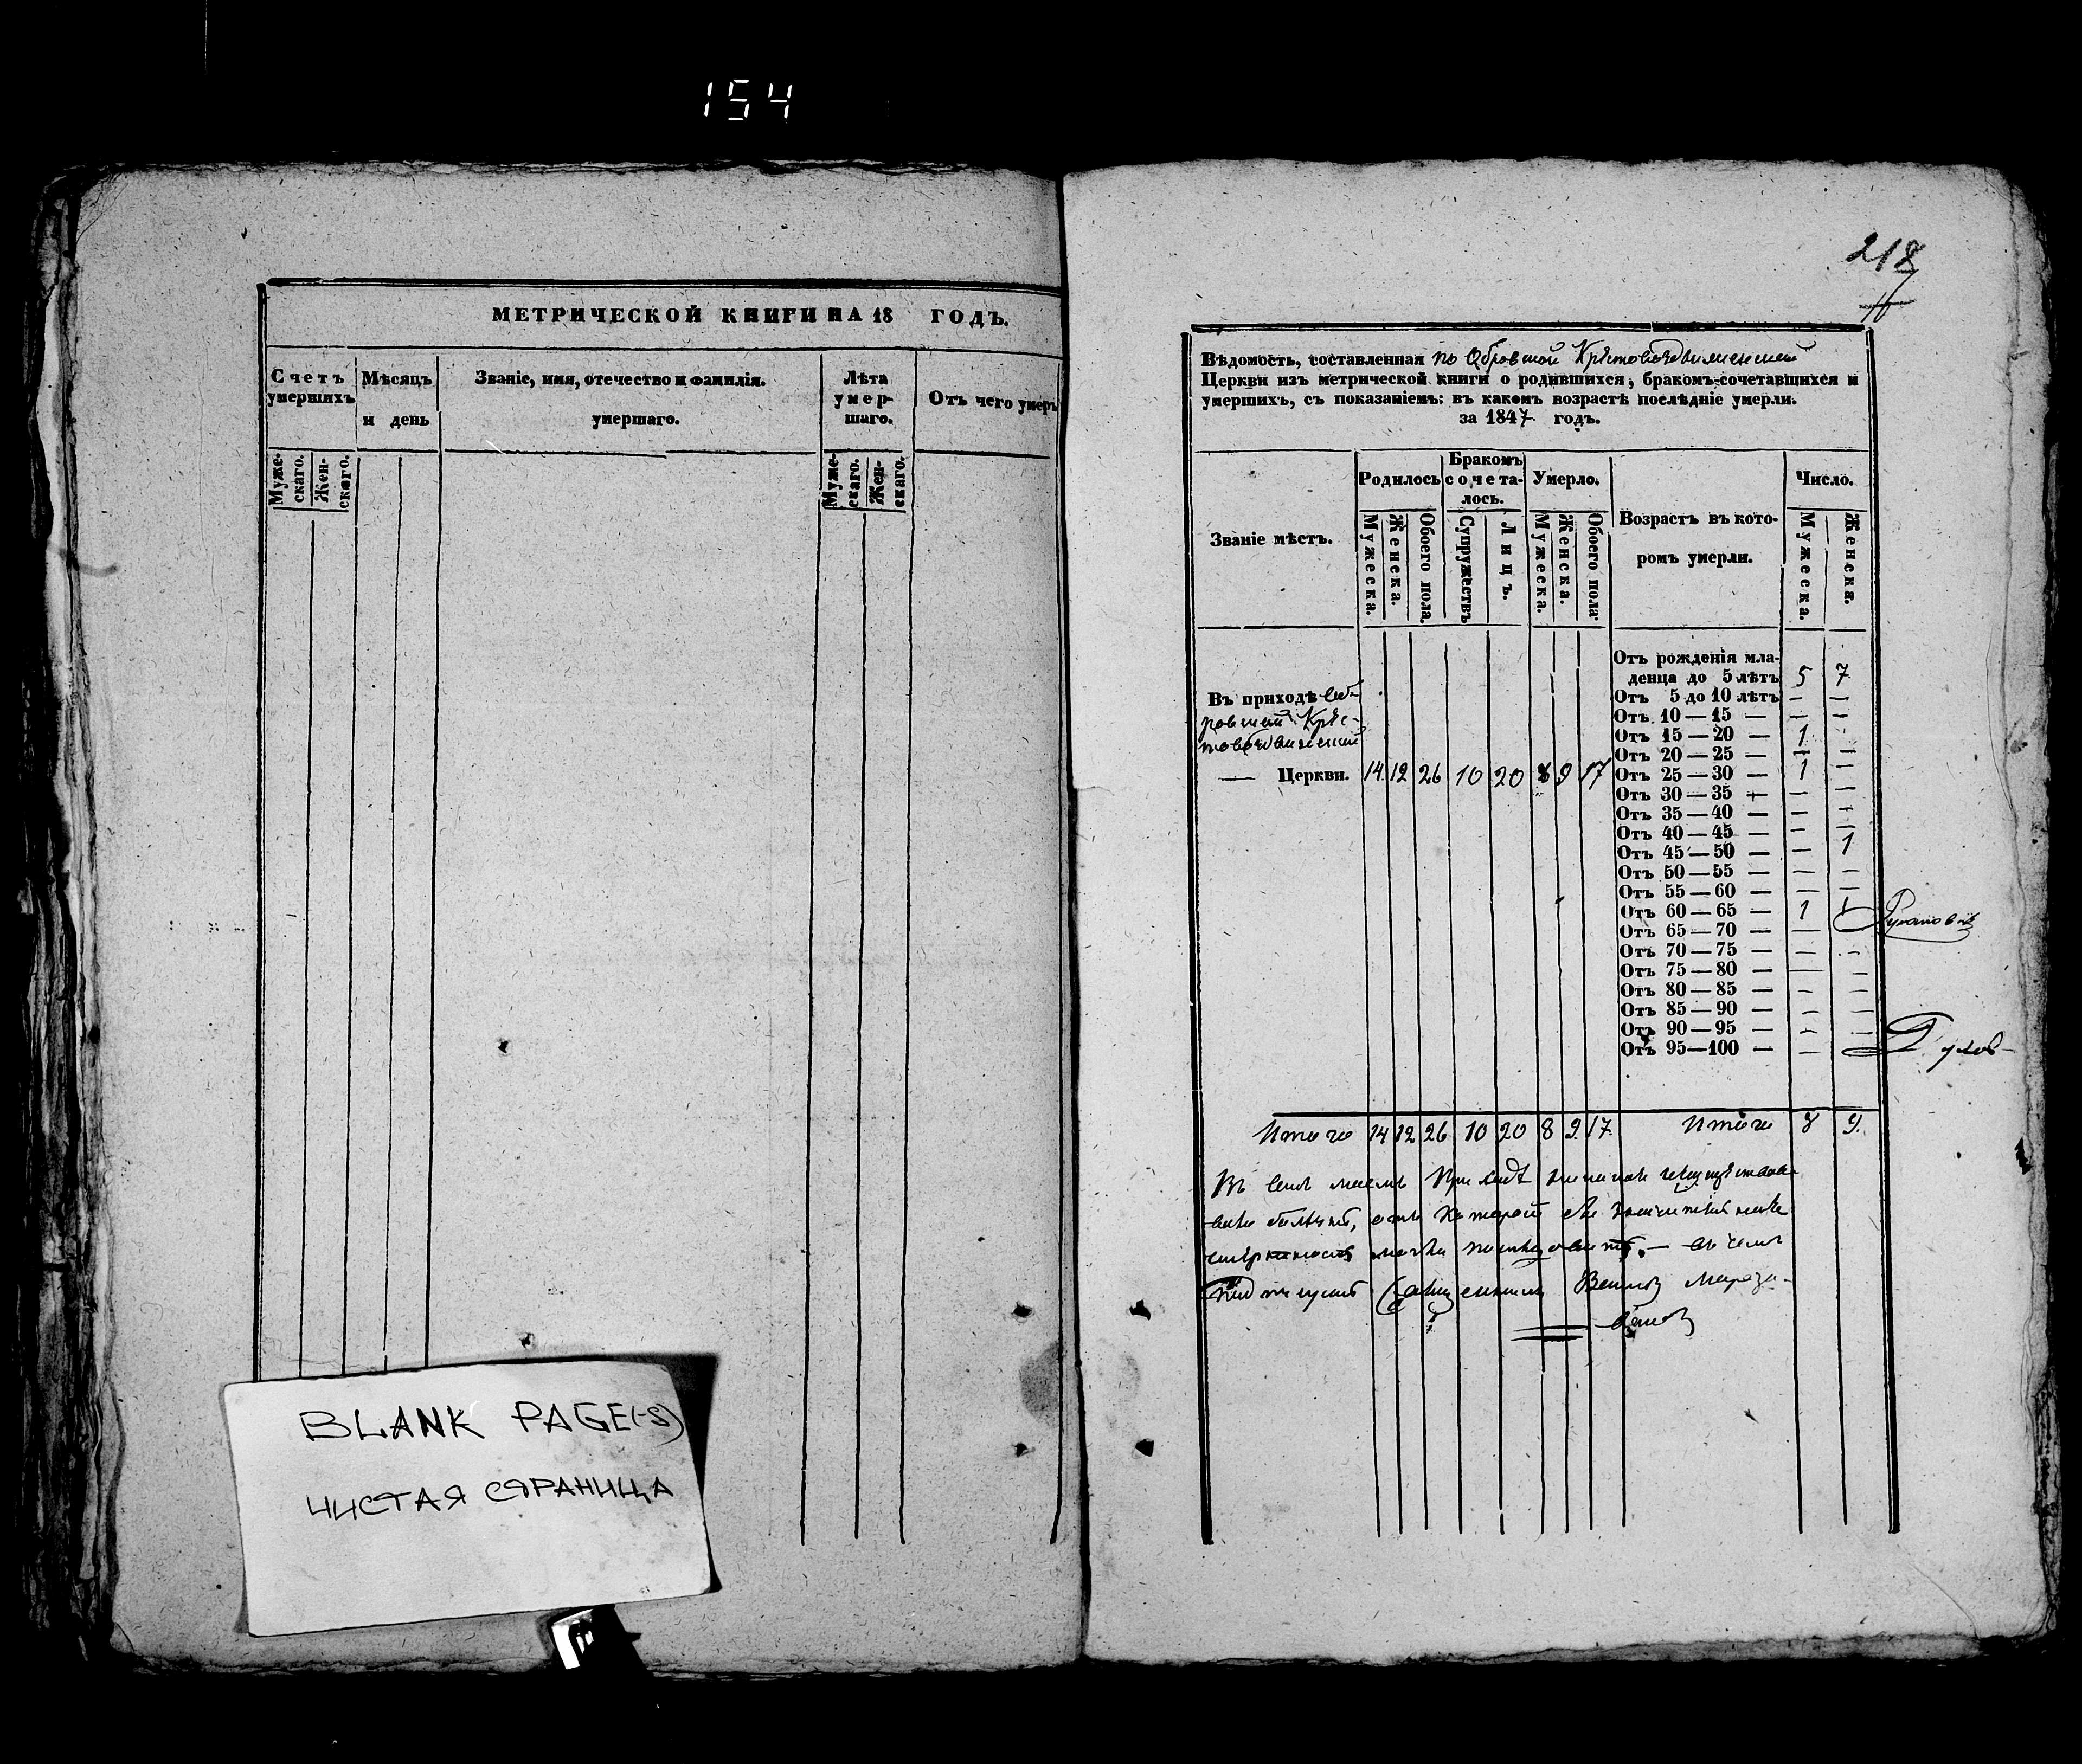 154
МЕТРИЧЕСКОЙ КНИГИ НА 18 ГОДЪ.
Счетъ умершихъ
Мѣсяцъ и день
Званіе, имя, отечество и фамилія. умершаго.
Лѣта умер-шаго.
Отъ чего умеръ
Муже-скаго.
Жен-скаго.
Муже-скаго.
Жен-скаго.
BLANK PAGE(-S)
ЧИСТАЯ СТРАНИЦА
218
Вѣдомость, составленная по Обровской Крестовоздвиженской
Церкви изъ метрической книги о родившихся, бракомъ-сочетавшихся и
умершихъ, съ показаніемъ: въ какомъ возрастѣ послѣдніе умерли.
за 1847 годъ.
Званіе мѣстъ.
Родилось
Бракомъ сочета-лось.
Умерло.
Возрастъ въ кото-ромъ умерли.
Число.
Мужеска.
Женска.
Обоего пола.
Супружествъ
Лицъ.
Мужеска.
Женска.
Обоего пола
Мужеска.
Женска.
Въ приходѣ Об-
ровской Крес-
товоздвиженской
— Церкви. 14 12 26 10 20 8 9 17
Отъ рожденія мла-
денца до 5 лѣтъ 5 7
Отъ 5 до 10 лѣтъ — —
Отъ 10 — 15 — — —
Отъ 15 — 20 — 1 —
Отъ 20 — 25 — — —
Отъ 25 — 30 — 1 —
Отъ 30 — 35 — — —
Отъ 35 — 40 — — —
Отъ 40 — 45 — — —
Отъ 45 — 50 — — 1
Отъ 50 — 55 — — —
Отъ 55 — 60 — — —
Отъ 60 — 65 — 1 1
Отъ 65 — 70 — —
Отъ 70 — 75 — — —
Отъ 75 — 80 — — —
Отъ 80 — 85 — — —
Отъ 85 — 90 — — —
Отъ 90 — 95 — — —
Отъ 95 — 100 — —
Итого 14 12 26 10 20 8 9 17 Итого 8 9.
Въ семъ моемъ Приходѣ
отъ которой
въ чемъ
Священникъ